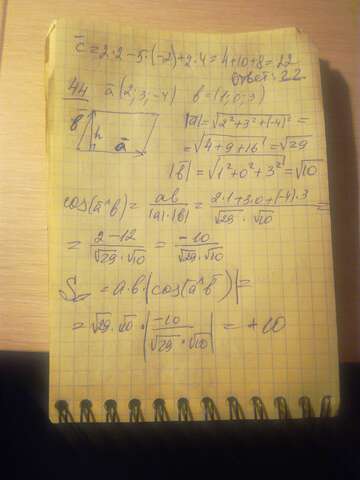 c̄ = 2·2-5·(-2)+2·4 = 4+10+8 = 22
ответ: 22
44 ā(2; 3; -4) b = (1; 0; 3)
b h ā
|ā| = √2²+3²+(-4)² =
= √4+9+16 = √29
|b̄| = √1²+0²+3² = √10
cos(ā^b) = ab/|a|·|b| = 2·1+3·0+(-4)·3/√29·√10 =
= 2-12/√29·√10 = -10/√29·√10
S▱ = a·b·|cos(ā^b̄)| =
= √29·√10·|-10/√29·√10| = +10